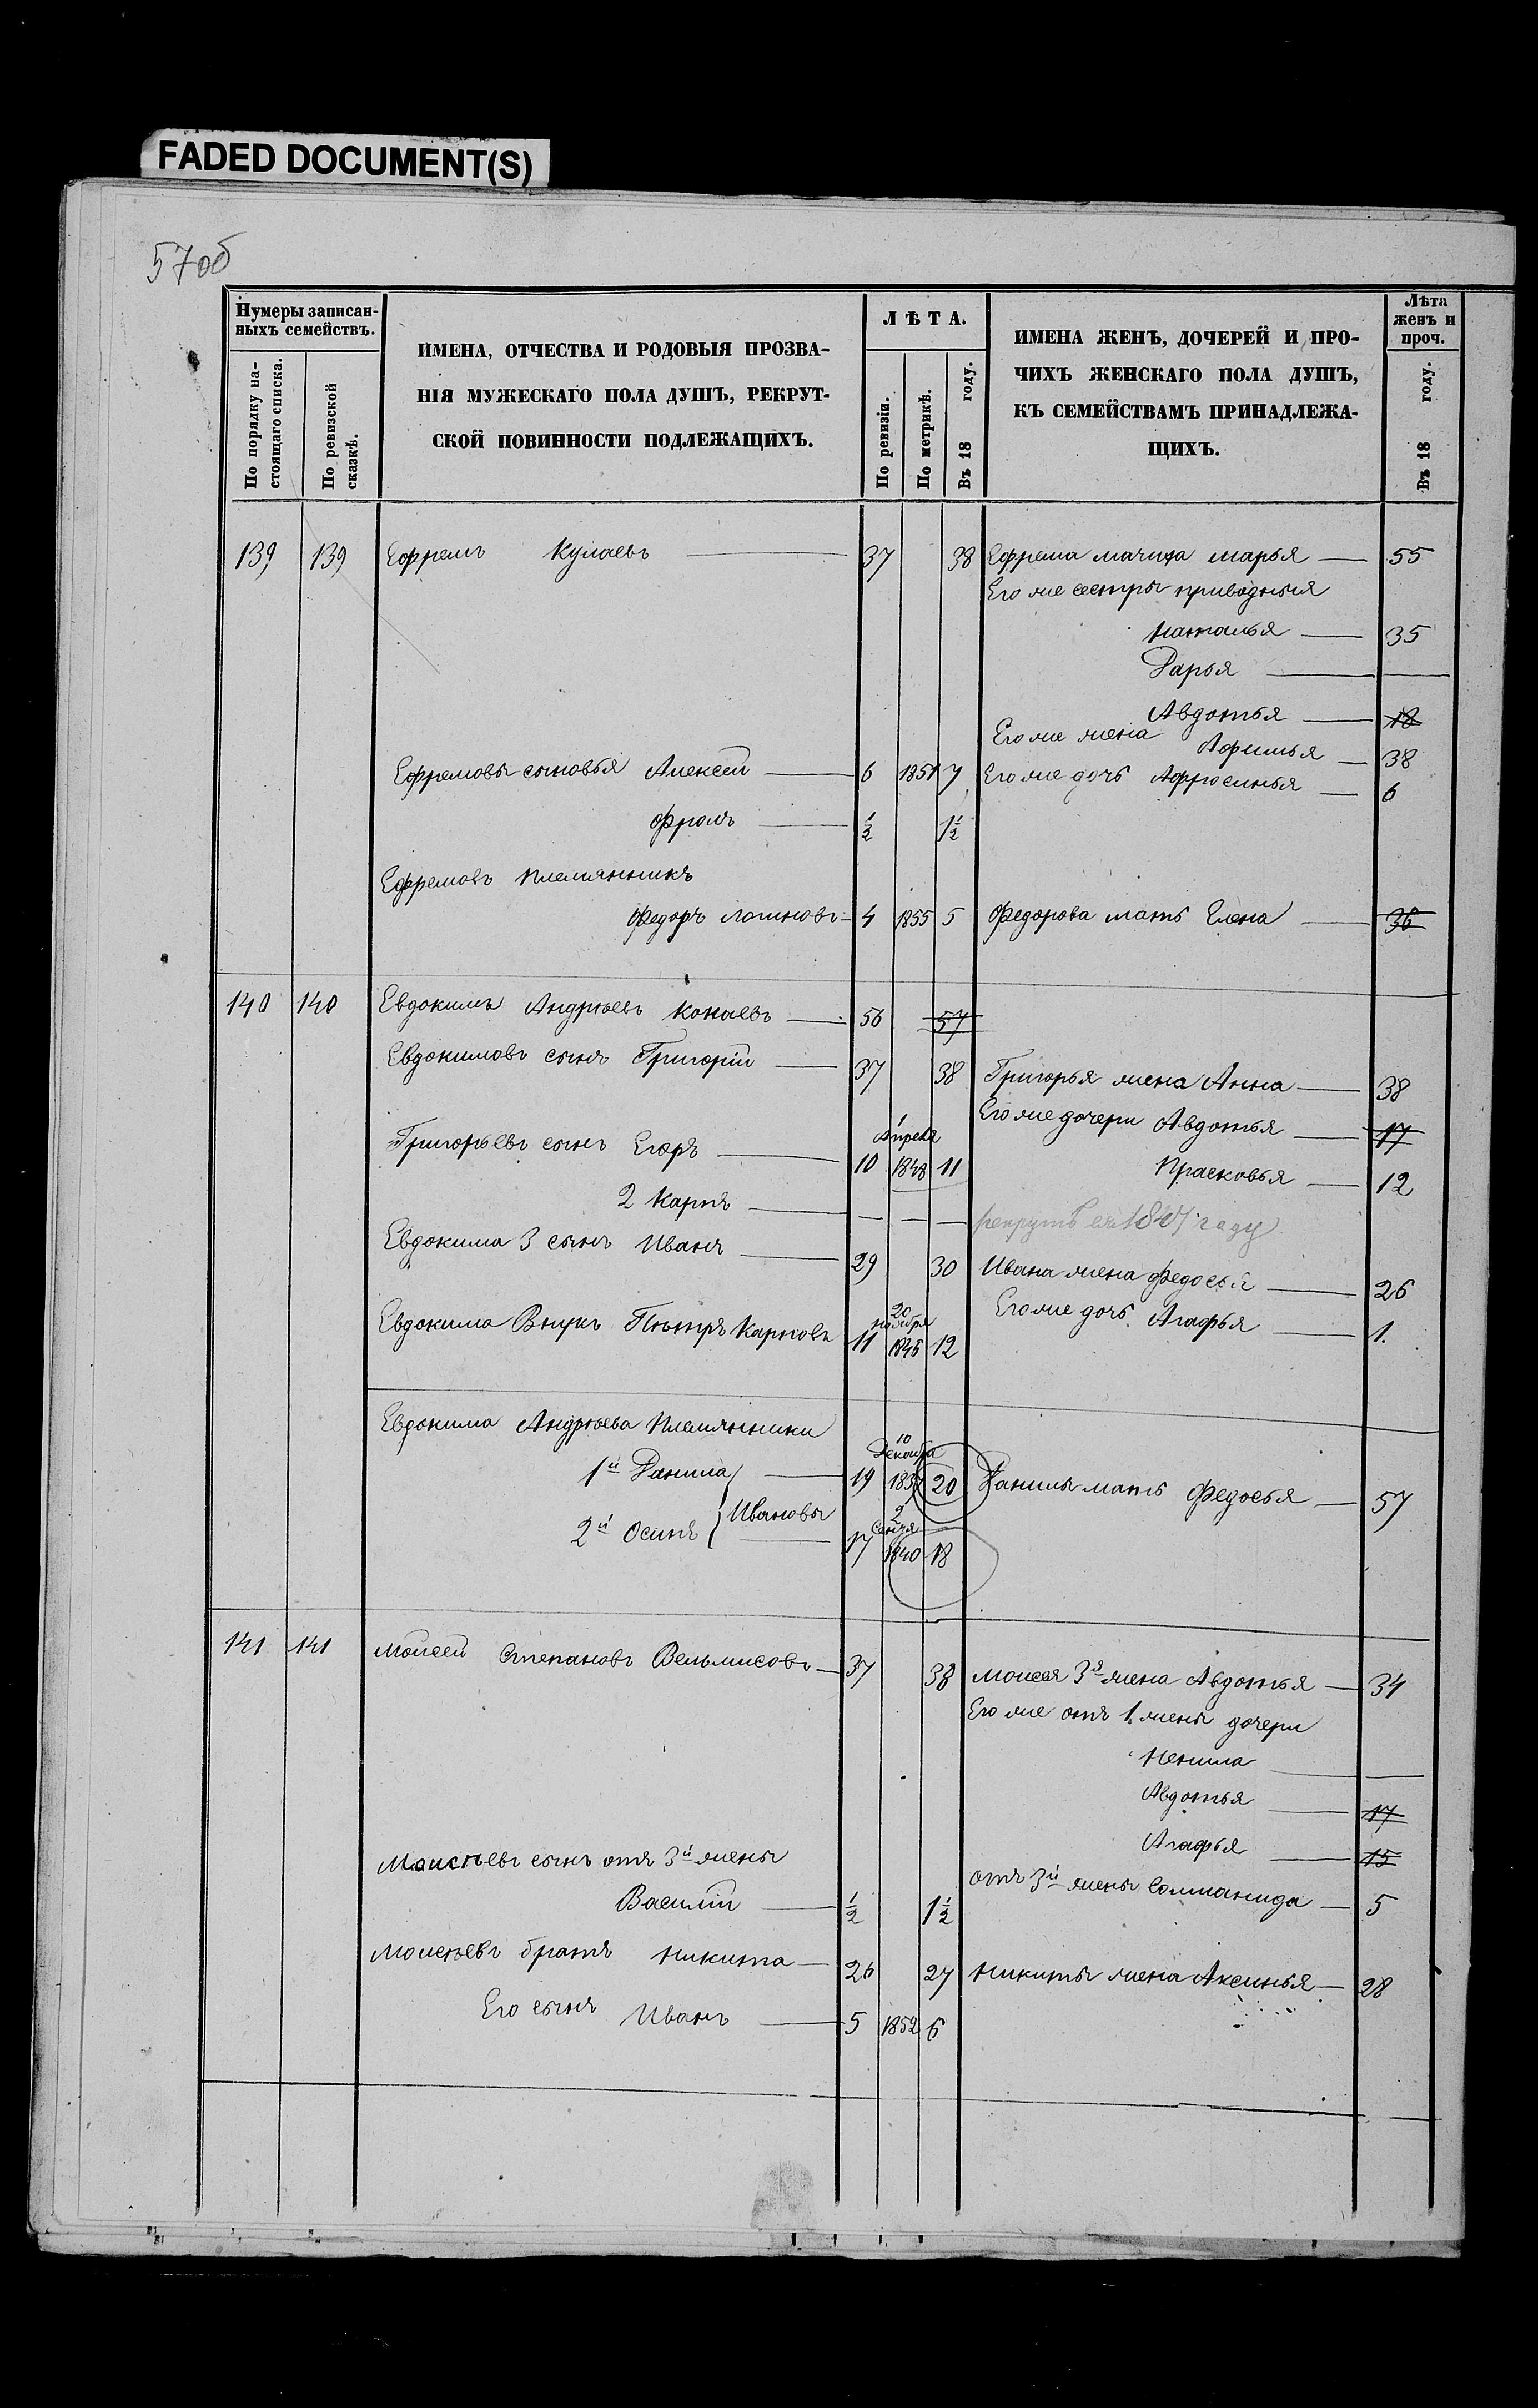 FADED DOCUMENT(S)
57об
Нумеры записан-
ныхъ семействъ.
По порядку на-
стоящаго списка.
По ревизской
сказкѣ.
ИМЕНА, ОТЧЕСТВА И РОДОВЫЯ ПРОЗВА-
НІЯ МУЖЕСКАГО ПОЛА ДУШЪ, РЕКРУТ-
СКОЙ ПОВИННОСТИ ПОДЛЕЖАЩИХЪ.
ЛѢТА.
По ревизіи.
По метрикѣ.
Въ 18 году.
ИМЕНА ЖЕНЪ, ДОЧЕРЕЙ И ПРО-
ЧИХЪ ЖЕНСКАГО ПОЛА ДУШЪ,
КЪ СЕМЕЙСТВАМЪ ПРИНАДЛЕЖА-
ЩИХЪ.
Лѣта
женъ и
проч.
Въ 18 году.
139 139 Ефремъ Кулаевъ — 37 38 Ефрема мачиха марья — 55
Его же сестры приводныя
Наталья — 35
Дарья —
Авдотья — 18
Его же жена Афимья — 38
Ефремовы сыновья Алексей — 6 1851 7 Его же дочь Афросинья — 6
Фролъ — ½ 1½
Ефремовъ племянникъ
Федоръ Логиновъ — 4 1855 5 Федорова мать Елена — 36
140 140 Евдокимъ Андреевъ Конаевъ — 56 57
Евдокимовъ сынъ Григорій — 37 38 Григорья жена Анна — 38
Его же дочери Авдотья — 17
Григорьевъ сынъ Егоръ — 10 1 Апреля 1848 11 Прасковья — 12
2 Карпъ — — — — рекрутъ въ 1847 году
Евдокима 3 сынъ Иванъ — 29 30 Ивана жена Федосья — 26
Его же дочь Агафья — 1.
Евдокима Внукъ Петръ Карповъ 11 20 ноября 1846 12
Евдокима Андреева Племянники
1й Данила } Ивановы — 19 10 Декабря 1837 20 Данилы мать Федосья — 57
2й Осипъ — 17 2 1840 18
141 141 Моисей Степановъ Вельмисовъ — 37 38 Моисея 3я жена Авдотья — 34
Его же отъ 1 жены дочери
Ненила —
Авдотья — 17
Агафья — 15
Моисѣевъ сынъ отъ 3й жены
Василій — ½ 1½ отъ 3й жены Соломанида — 5
Моисѣевъ братъ Никита — 26 27 Никиты жена Аксинья — 28
Его сынъ Иванъ — 5 1852 6